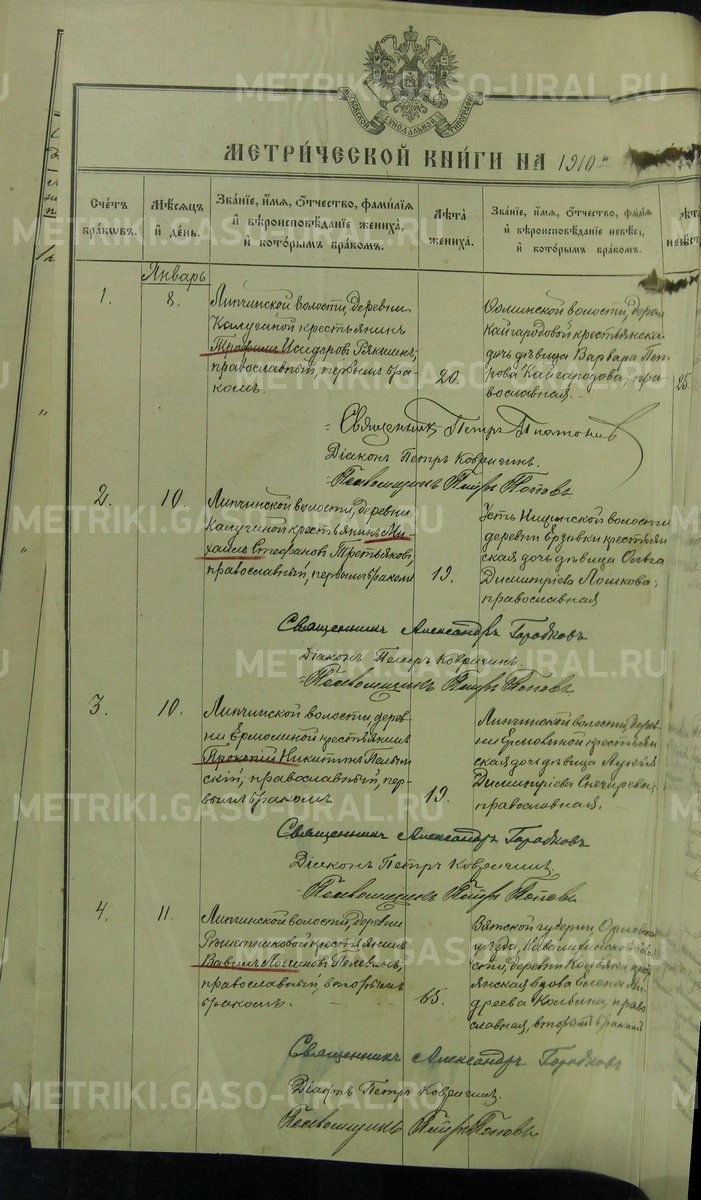 МОСКОВСКОЙ СИНОДАЛЬНОЙ ТИПОГРАФІИ
МЕТРИЧЕСКОЙ КНИГИ НА 1910
Счетъ браковъ.
Мѣсяцъ и день.
Званіе, имя, отчество, фамилія
и вѣроисповѣданіе жениха,
и которымъ бракомъ.
Лѣта жениха.
Званіе, имя, отчество, фамилія
и вѣроисповѣданіе невѣсты,
и которымъ бракомъ.
Лѣта
невѣст
Январь
1.
8.
Липчинской волости, деревни
Калугиной крестьянинъ
Трофимъ Исидоровъ Рякшинъ,
православный, первымъ бра-
комъ.
20.
волости, дерев
Кайгородовой крестьянска
дочь дѣвица Варвара Пет
рова Кайгородова, пра
вославная.
25
Священникъ Петръ Платоновъ
Діаконъ Петръ Ковригинъ.
Псаломщикъ Петръ Поповъ
2.
10.
Липчинской волости, деревни
Калугиной крестьянинъ Ми-
хаилъ Стефановъ Третьяковъ,
православный, первымъ бракомъ
19.
Усть Ницынской волости
деревни Ерзовки крестьян
ская дочь дѣвица Ольга
Димитріева Лошкова,
православная
Священникъ Александръ Городковъ
Діаконъ Петръ Ковригинъ.
Псаломщикъ Петръ Поповъ
3.
10.
Липчинской волости дерев
ни Ермолиной крестьянинъ
Прокопій Никитинъ
православный, пер-
вымъ бракомъ
19.
Липчинской волости, дерев
ни Ермолиной крестьян
ская дочь дѣвица Лукія
Димитріева Снегирева,
православная.
Священникъ Александръ Городковъ
Діаконъ Петръ Ковригинъ
Псаломщикъ Петръ Поповъ
4.
11.
Липчинской волости, деревни
Решетниковой крестьянинъ
Вавилъ Логиновъ Пелевинъ,
православный, вторымъ
бракомъ.
65.
Вятской губерніи Орловскаго
уѣзда, волос
ти, деревни кресть
янская вдова Елена Ан
дреева Колбина, право
славная, вторымъ бракомъ
Священникъ Александръ Городковъ
Діаконъ Петръ Ковригинъ.
Псаломщикъ Петръ Поповъ
METRIKI.GASO-URAL.RU
METRIKI.GASO-URAL.RU
METRIKI.GASO-URAL.RU
METRIKI.GASO-URAL.RU
METRIKI.GASO-URAL.RU
METRIKI.GASO-URAL.RU
METRIKI.GASO-URAL.RU
METRIKI.GASO-URAL.RU